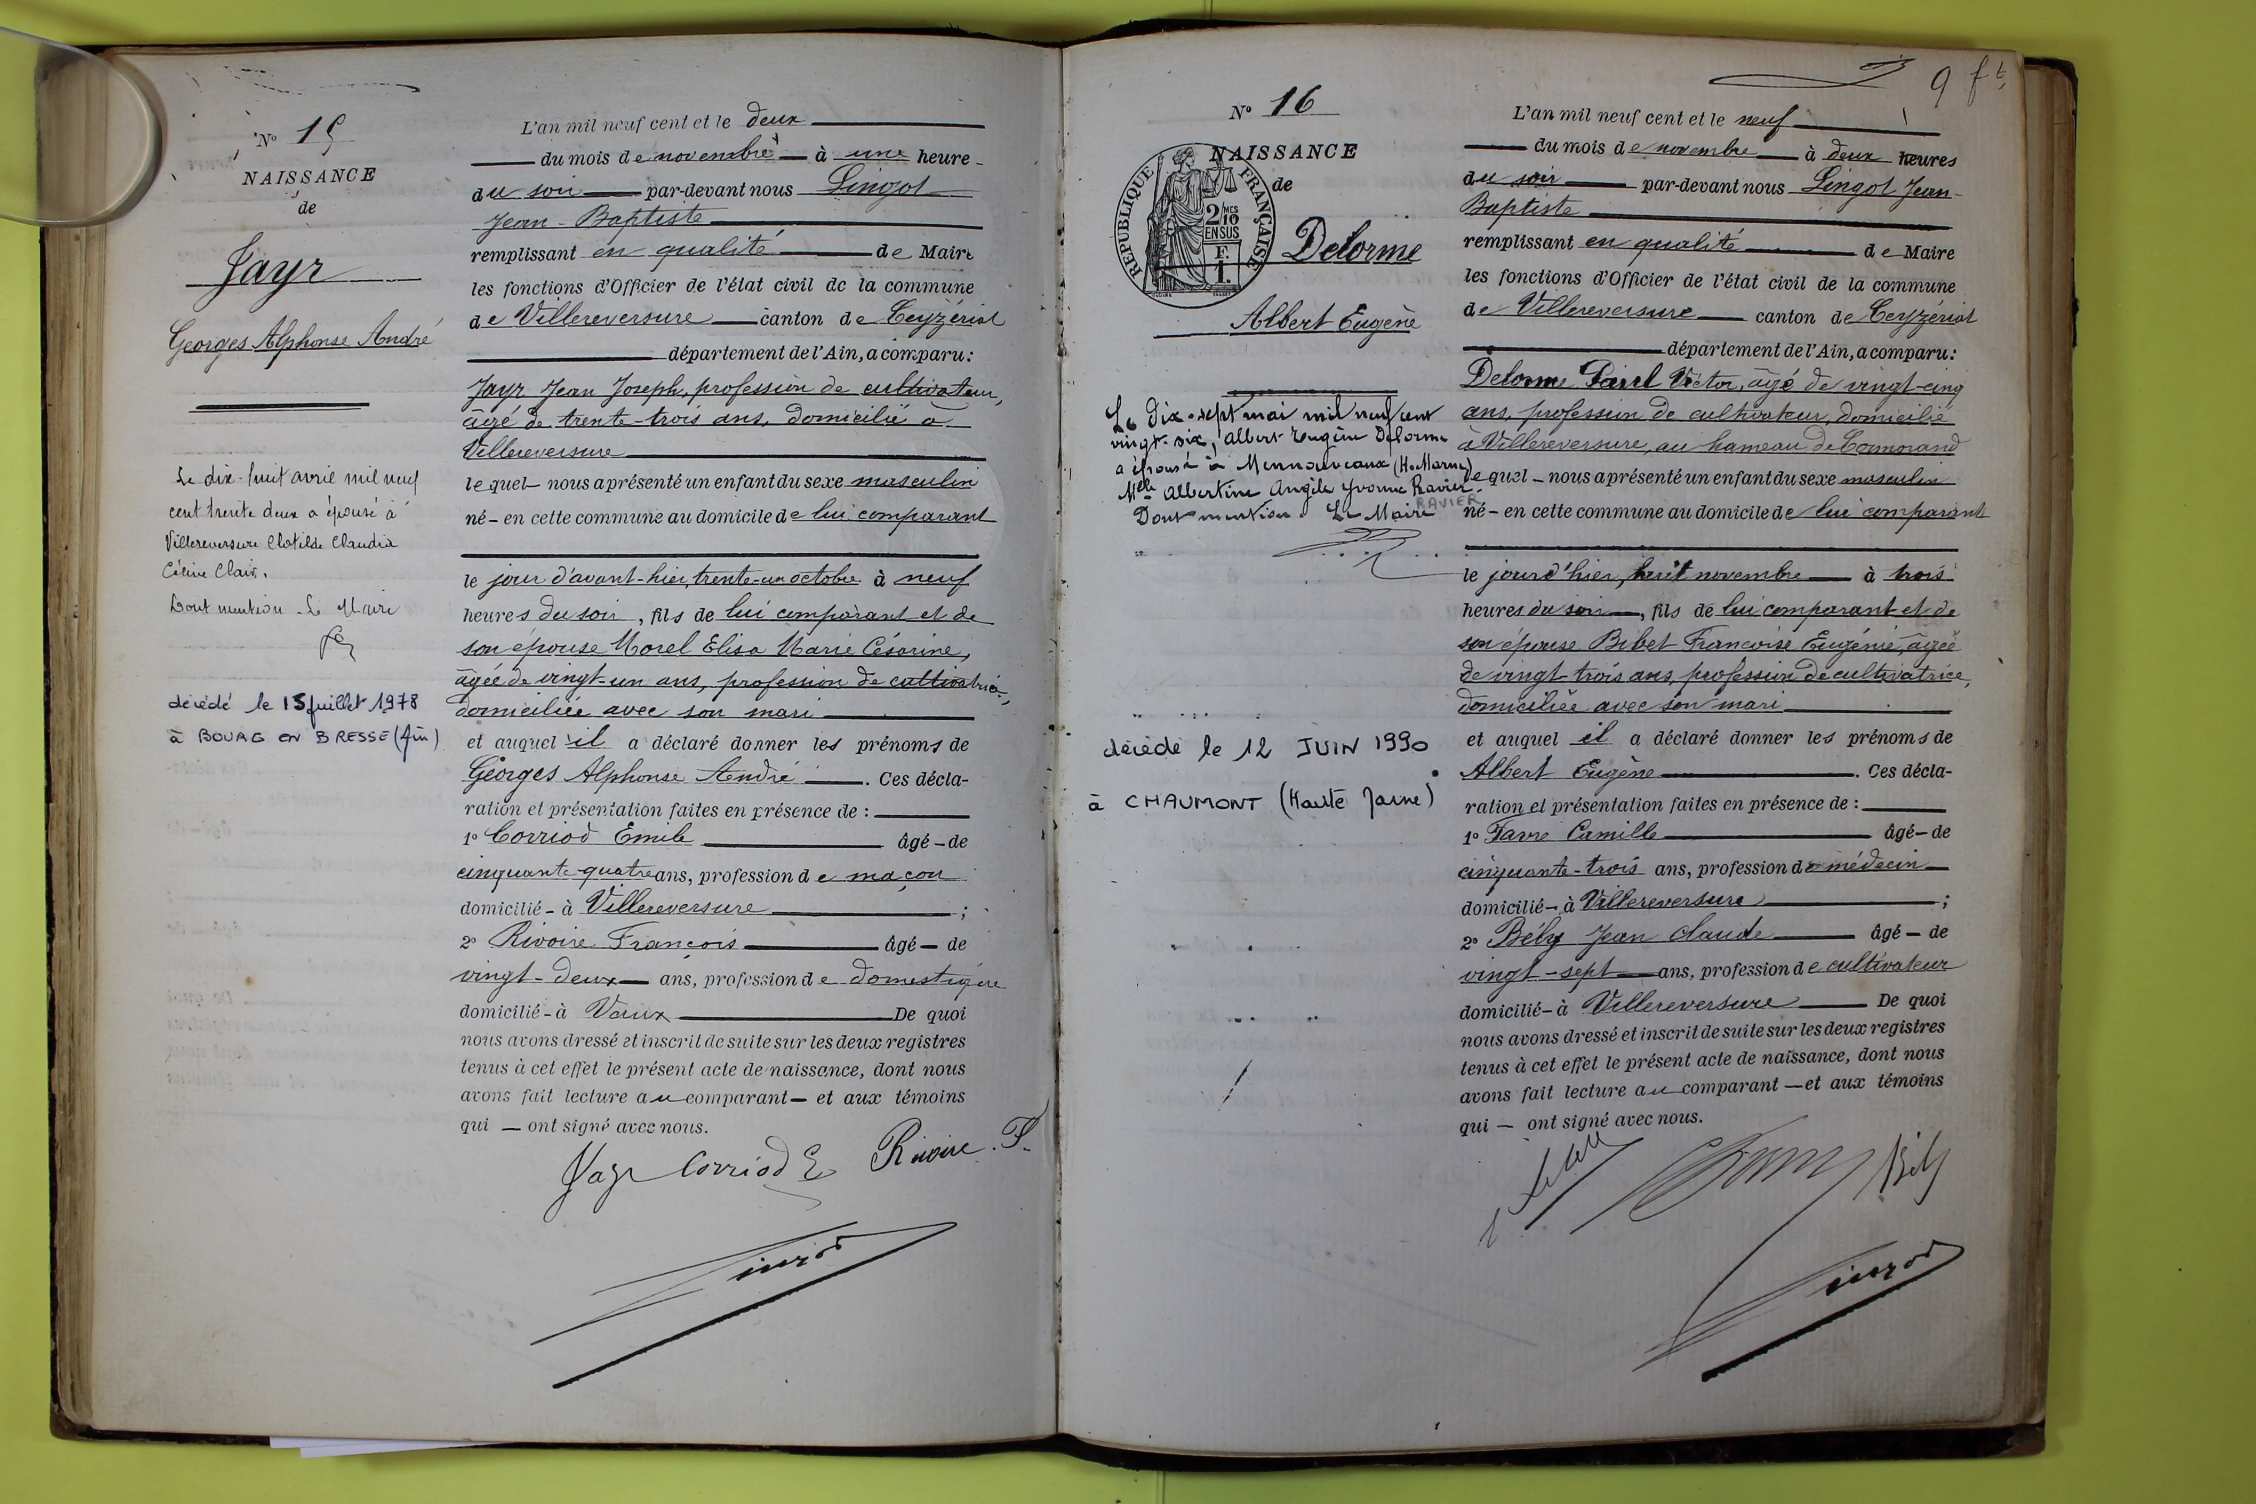 N° 15
NAISSANCE
de
Jayr
Georges Alphonse André
Le dix-huit avril mil neuf
cent trente deux a épousé à
Villereversure Clotilde Claudia
Céline Clair.
Dont mention - Le Maire
décédé le 15 juillet 1978
à BOURG EN BRESSE (Ain)
L'an mil neuf cent et le deux
du mois de novembre à une heure
du soir par-devant nous Lingot
Jean-Baptiste
remplissant en qualité de Maire
les fonctions d'Officier de l'état civil de la commune
de Villereversure canton de Ceyzériat
département de l'Ain, a comparu :
Jayr Jean Joseph, profession de cultivateur,
âgé de trente-trois ans, domicilié à
Villereversure
lequel nous a présenté un enfant du sexe masculin
né - en cette commune au domicile de lui comparant
le jour d'avant-hier, trente-un octobre à neuf
heures du soir, fils de lui comparant et de
son épouse Morel Elisa Marie Césarine,
âgée de vingt-un ans, profession de cultivatrice,
domiciliée avec son mari
et auquel il a déclaré donner les prénoms de
Georges Alphonse André . Ces décla-
ration et présentation faites en présence de :
1° Corriod Emile âgé - de
cinquante-quatre ans, profession de maçon
domicilié - à Villereversure ;
2° Rivoire François âgé - de
vingt-deux ans, profession de domestique
domicilié - à Vaux De quoi
nous avons dressé et inscrit de suite sur les deux registres
tenus à cet effet le présent acte de naissance, dont nous
avons fait lecture au comparant - et aux témoins
qui - ont signé avec nous.
Jayr Corriod E Rivoire . F.
9 ft
N° 16
NAISSANCE
de
RÉPUBLIQUE FRANÇAISE
2 MES
10
EN SUS
F.
1.
Delorme
Albert Eugène
Le dix-sept mai mil neuf cent
vingt-six, Albert Eugène Delorme
a épousé à Mennouveaux (Hte Marne)
Melle Albertine Angèle Yvonne Ravier
RAVIER
Dont mention Le Maire
décédé le 12 JUIN 1990
à CHAUMONT (Haute Marne)
L'an mil neuf cent et le neuf
du mois de novembre à deux heures
du soir par-devant nous Lingot Jean-
Baptiste
remplissant en qualité de Maire
les fonctions d'Officier de l'état civil de la commune
de Villereversure canton de Ceyzériat
département de l'Ain, a comparu :
Delorme Paul Victor, âgé de vingt-cinq
ans, profession de cultivateur, domicilié
à Villereversure, au hameau de
lequel - nous a présenté un enfant du sexe masculin
né - en cette commune au domicile de lui comparant
le jour d'hier, huit novembre à trois
heures du soir, fils de lui comparant et de
son épouse Bibet Françoise Eugénie, âgée
de vingt-trois ans, profession de cultivatrice,
domiciliée avec son mari
et auquel il a déclaré donner les prénoms de
Albert Eugène . Ces décla-
ration et présentation faites en présence de :
1° Favre Camille âgé - de
cinquante-trois ans, profession de médecin
domicilié - à Villereversure ;
2° Bély Jean Claude âgé - de
vingt-sept ans, profession de cultivateur
domicilié - à Villereversure De quoi
nous avons dressé et inscrit de suite sur les deux registres
tenus à cet effet le présent acte de naissance, dont nous
avons fait lecture au comparant - et aux témoins
qui - ont signé avec nous.
Bély